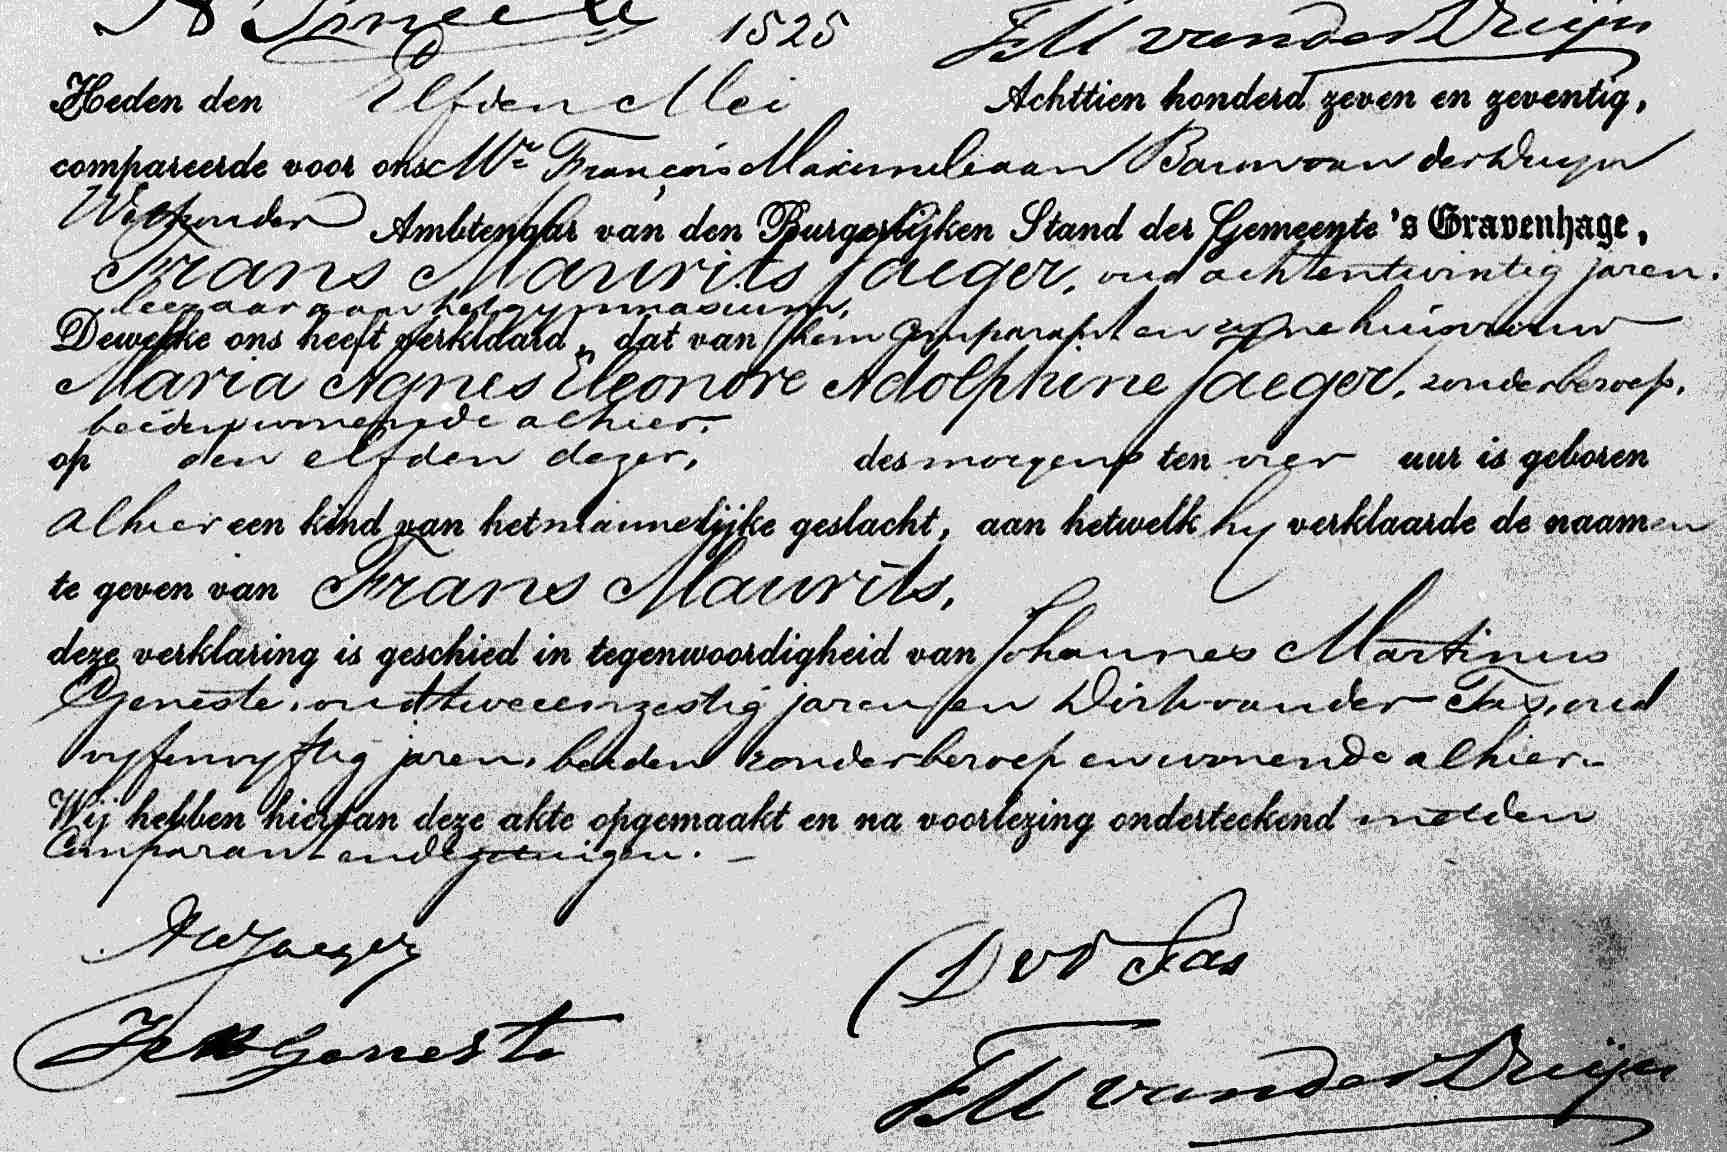 1525 FM van der Duijn
Heden den Elfden Mei Achttien honderd zeven en zeventig,
compareerde voor ons Mr. François Maximiliaan Baron van der Duyn
Wethouder Ambtenaar van den Burgerlijken Stand der Gemeente 's Gravenhage,
Frans Maurits Jaeger, oud achtentwintig jaren.
leeraar aan het gymnasium,
Dewelke ons heeft verklaard, dat van hem Comparant en zijne huisvrouw
Maria Agnes Eleonore Adolphine Jaeger, zonder beroep,
beiden wonende alhier,
op den elfden dezer, des morgens ten vier uur is geboren
alhier een kind van het mannelijke geslacht, aan hetwelk hy verklaarde de naamen
te geven van Frans Maurits,
deze verklaring is geschied in tegenwoordigheid van Johannes Martinus
Geneste, oud tweeenzestig jaren en Dirk van der Tas, oud
vyfenvyftig jaren, beiden zonder beroep en wonende alhier.
Wij hebben hiervan deze akte opgemaakt en na voorlezing onderteekend met den
Comparant en de getuigen. —
Jaeger D v d Tas
Geneste
FM van der Duijn